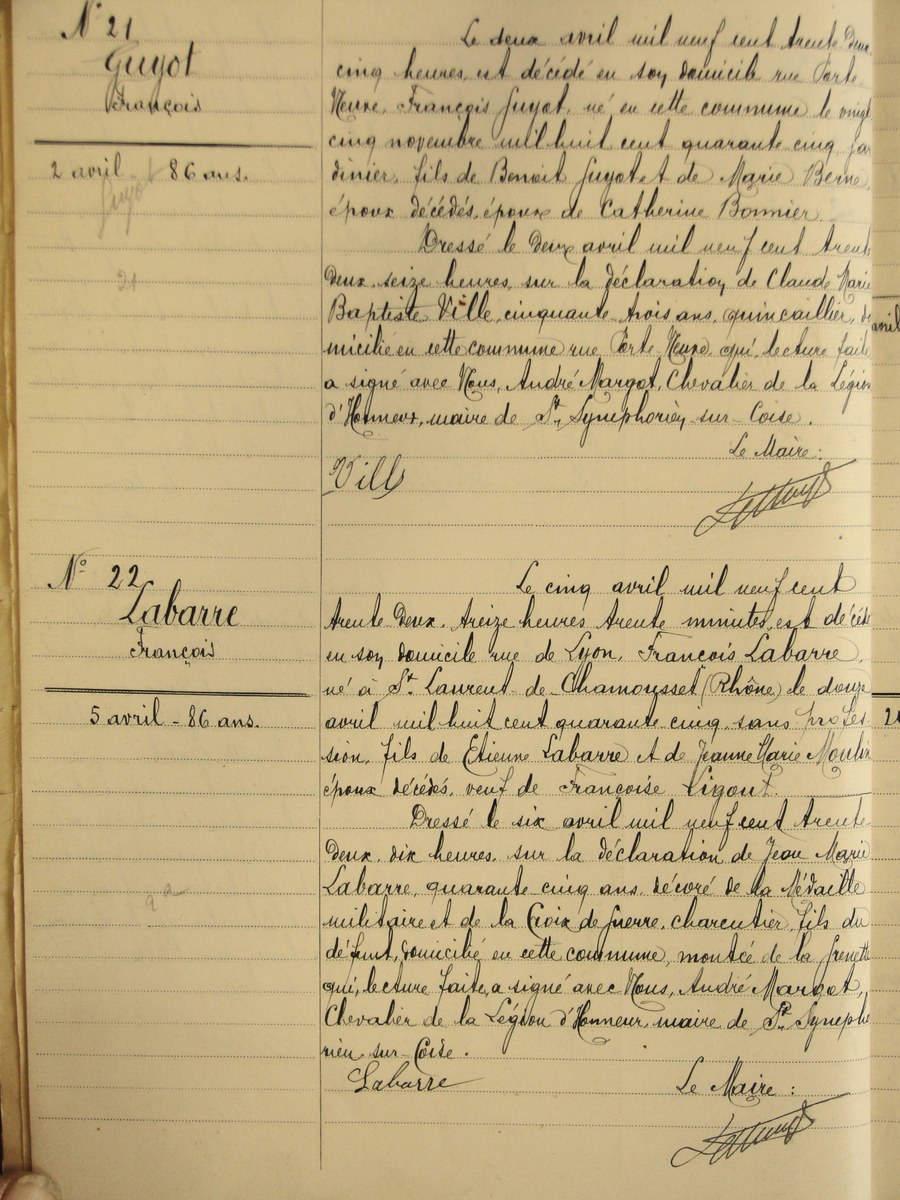 N° 21
Guyot
François
2 avril - 86 ans.
Guyot
21
Le deux avril mil neuf cent trente deux
cinq heures, est décédé en son domicile rue Porte
Neuve, François Guyot, né en cette commune le vingt
cinq novembre mil huit cent quarante cinq, jar
dinier, fils de Benoit Guyot et de Marie Berne,
époux décédés, époux de Catherine Bonnier.
Dressé le deux avril mil neuf cent trente
deux, seize heures, sur la déclaration de Claude Marie
Baptiste Ville, cinquante trois ans, quincaillier, do
micilié en cette commune rue Porte Neuve, qui, lecture faite
a signé avec Nous, André Margot, Chevalier de la Légion
d'Honneur, maire de St Symphorien sur-Coise.
Le Maire:
Ville
N° 22
Labarre
François
5 avril - 86 ans.
Le cinq avril mil neuf cent
trente deux, treize heures trente minutes, est décédé
en son domicile rue de Lyon, François Labarre,
né à St Laurent-de-Chamousset (Rhône) le douze
avril mil huit cent quarante cinq, sans profes
sion, fils de Etienne Labarre et de Jeanne Marie Moulin
époux décédés, veuf de Françoise Ligout.
Dressé le six avril mil neuf cent trente
deux, dix heures, sur la déclaration de Jean Marie
Labarre, quarante-cinq ans, décoré de la Médaille
militaire et de la Croix de guerre, charcutier, fils du
défunt, domicilié en cette commune, montée de la Grenette
qui, lecture faite, a signé avec Nous, André Margot,
Chevalier de la Légion d'Honneur, maire de St Sympho
rien sur-Coise.
Labarre
Le Maire:
avril